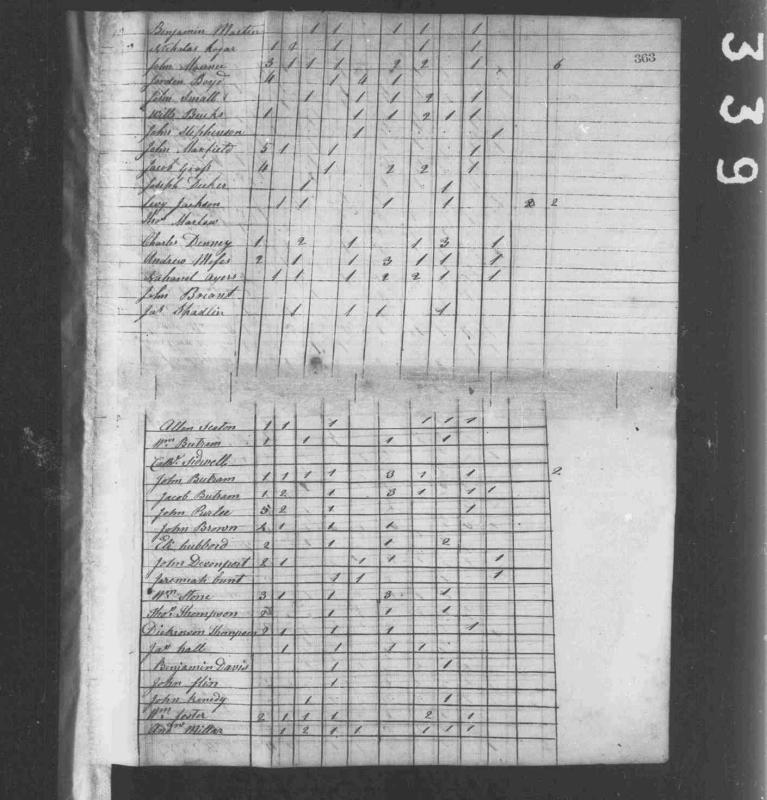 363
339
Benjamin Martin 1 1 1 1 1
Nicholas 1 1 1 1
John 3 1 1 1 2 2 1 6
Jorden Boyd 4 1 4 1
John Small 1 1 1 2 1
Willis 1 1 1 1 2 1 1
John Stephenson 1 1
John Maxfield 5 1 1 1
Jacob Goss 4 1 2 2 1
Joseph Decker 1 1
Levy Jackson 1 1 1 1 2
Thos Marlow
Charles Denney 1 2 1 1 3 1
Andrew 2 1 1 3 1 1 1
Nathaniel Ayers 1 1 1 2 2 1 1
John Briant
Jas Shadlin 1 1 1 1
Allen Seaton 1 1 1 1 1 1
Wm Butram 1 1 1 1
Sidwell
John Butram 1 1 1 1 3 1 1 2
Jacob Butram 1 2 1 3 1 1 1
John 5 2 1 1
John Brown 2 1 1 1
Eli hubbord 2 1 1 2
John Devonport 2 1 1 1 1
Jeremiah bunt 1 1 1
Wm Stone 3 1 1 3 1
Thos Thompson 2 1 1 1
Dickinson Thompson 2 1 1 1 1
Jas hall 1 1 1 1
Benjamin Davis 1 1
John flin 1
John kenedy 1 1
Wm foster 2 1 1 1 2 1
Andw Millar 1 2 1 1 1 1 1